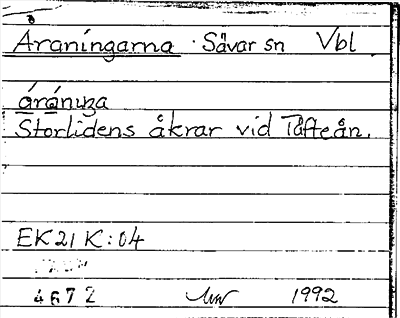 Åraningarna · Sävar sn Vbl
åråniŋa
Storlidens åkrar vid Täfteån.
EK 21 K:04
4672 1992